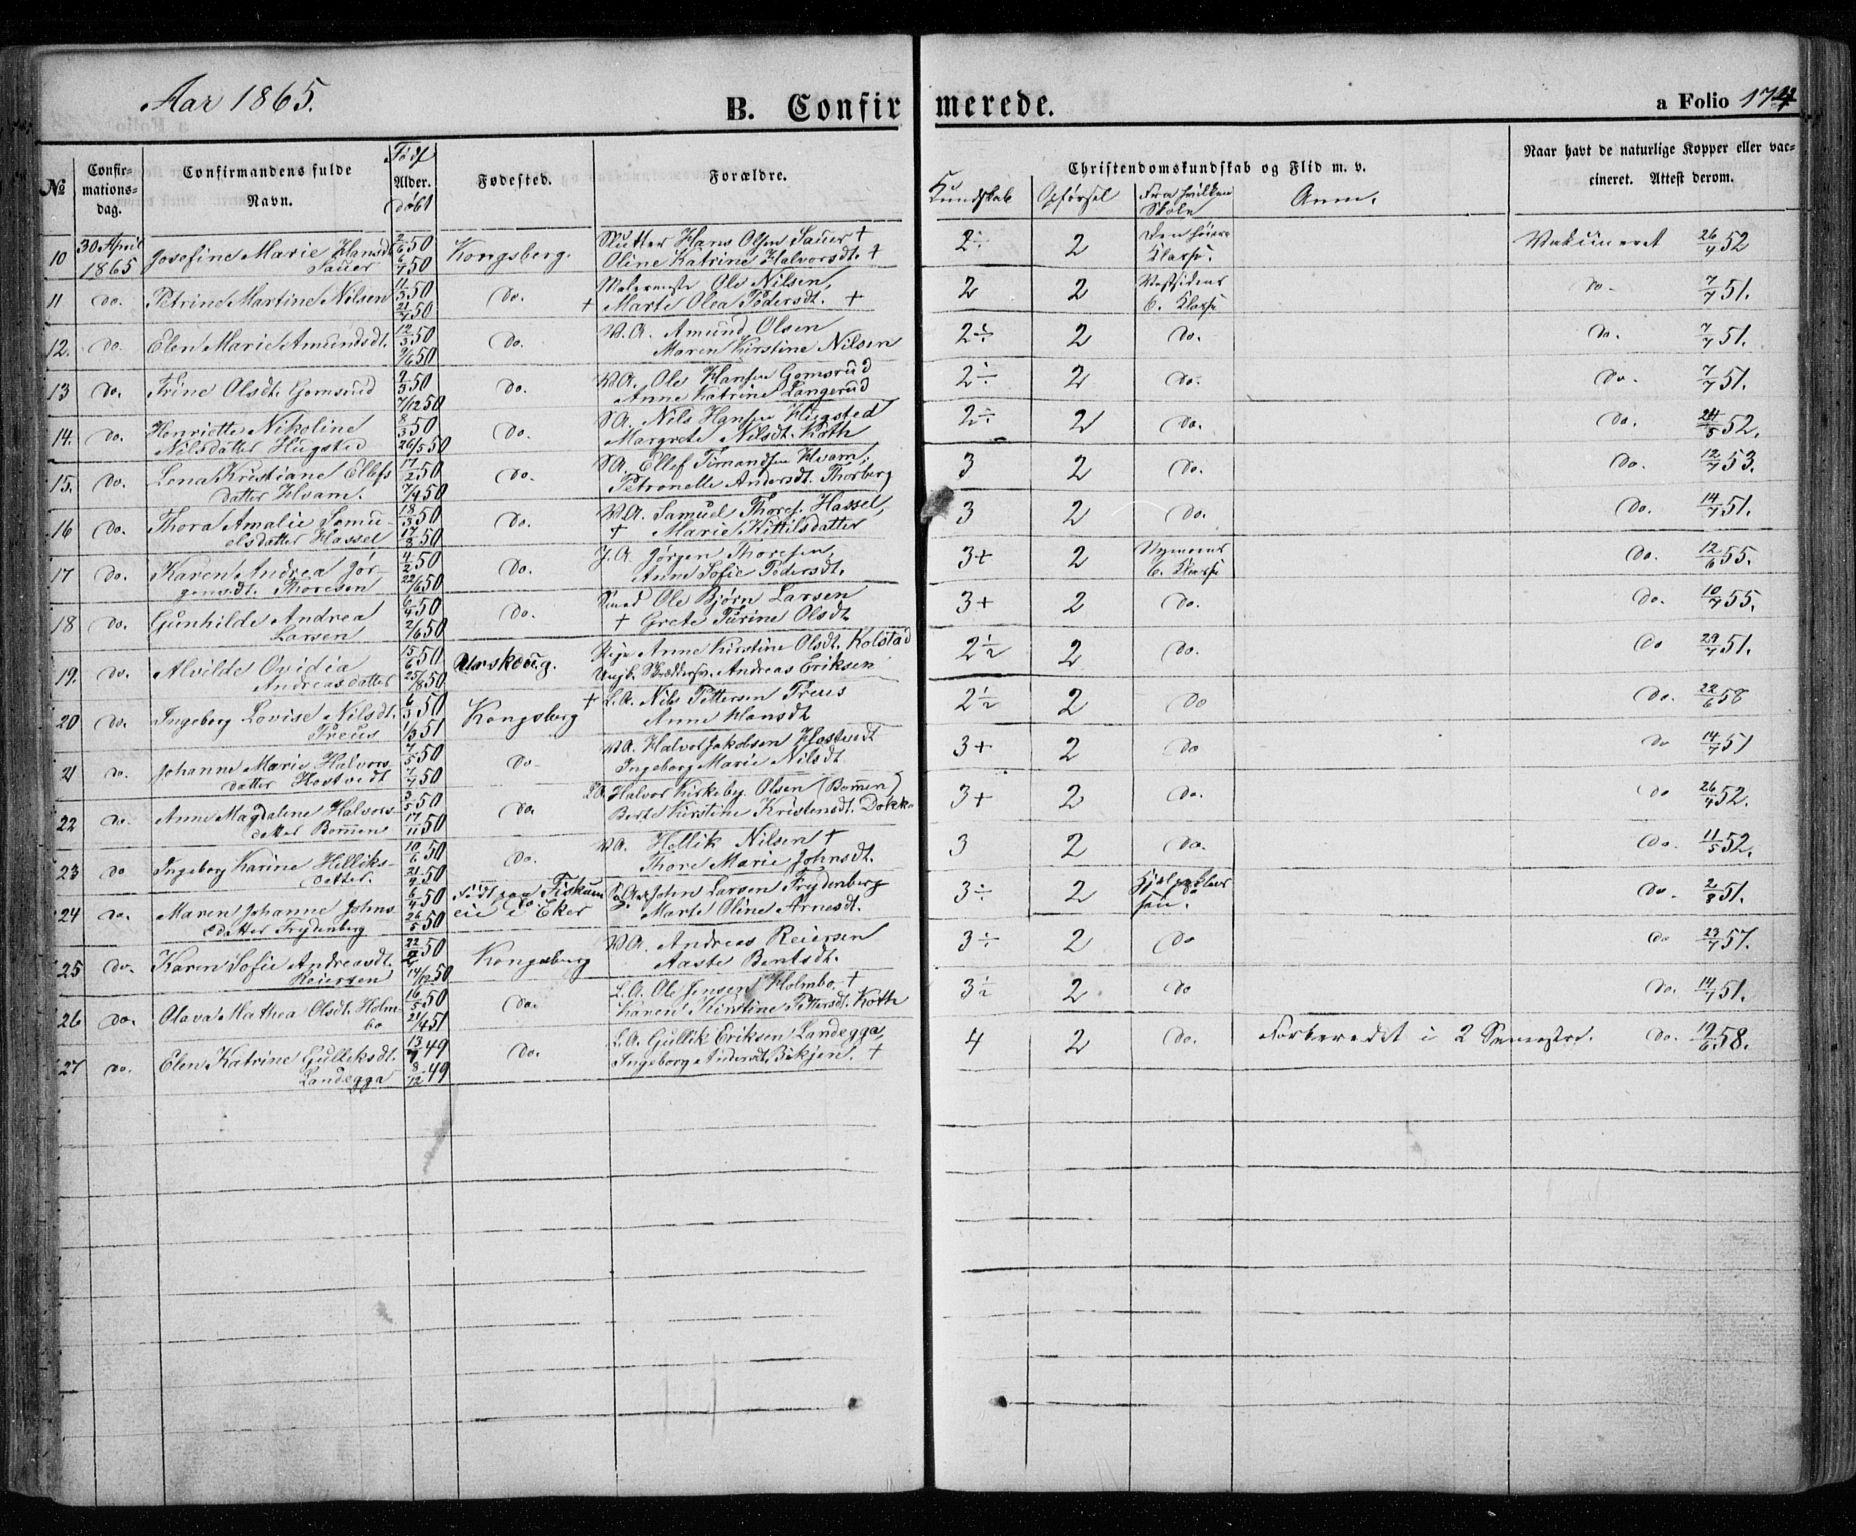 Aar 1865.
B. Confirmerede.
a Folio 174
№
Confirmationsdag.
Confirmandens fulde Navn.
Født
Alder.
Døbt
Fødested.
Forældre.
Christendomskundskab og Flid m. v.
Kundskab
Opførsel
Fra hvilken Skole
Anm.
Naar havt de naturlige Kopper eller vaccineret. Attest derom.
10 30 April 1865 Josefine Marie Hansdt. Sauer 2/6 50 6/7 50 Kongsberg. Slutter Hans Olsen Sauer † Oline Katrine Halvorsdt. † 2÷ 2 Den høiere Klasse. Vakcineret 26/4 52
11 do. Petrine Martine Nilsen 11/3 50 21/4 50 Do. Malermester Ole Nilsen, † Marte Olea Pedersdt. † 2 2 Vestsidens 6. Klasse do- 7/7 51.
12. do. Elen Marie Amundsdt. 12/3 50 9/6 50 Do. B.A. Amund Olsen Maren Kirstine Nilsen 2÷ 2 Do. do. 7/7 51.
13 do. Trine Olsdt. Gomsrud 2/3 50 7/12 50 Do. B.A. Ole Hansen Gomsrud Anne Katrine Langerud 2÷ 2 Do. do. 7/7 51.
14. do. Henriette Nikoline Nilsdatter Hugsted 8/3 50 26/5 50 Do. SA. Nils Hansen Hugsted Margrete Nilsdt. Koth 2÷ 2 Do. Do. 24/5 52.
15. do. Lona Kristiane Ellefsdatter Hvam. 17/2 50 7/4 50 Do. SA. Ellef Simandsen Hvam, Petronelle Andersdt. Thorberg 3 2 Do. Do. 12/7 53.
16 do. Thora Amalie Samuelsdatter Hassel 18/3 50 17/8 50 Do. B.A. Samuel Thores. Hassel, † Marie Kittilsdatter 3 2 Do. Do. 14/7 51.
17 do. Karen Andrea Jørgensdt. Thoresen 4/2 50 22/6 50 Do. J.A. Jørgen Thoresen, Anne Sofie Pedersdt. 3+ 2 Nymoens 6. Klasse Do. 12/6 55.
18 do. Gunhilde Andrea Larsen 6/4 50 2/6 50 Do. Smed Ole Bjørn Larsen † Grete Turine Olsdt. 3+ 2 Do. Do. 10/7 55.
19. do. Alvilde Ovidia Andreasdatter 15/6 50 25/8 50 Urskoug. Pige Anne Kirstine Olsdt. Kolstad Ungk. Andreas Eriksen 2½ 2 Do. Do 29/7 51.
20 do. Ingeborg Lovise Nilsdt. Preus 6/3 50 1/3 51 Kongsberg † L.A. Nils Pettersen Preus Anne Hansdt 2½ 2 Do Do. 22/6 58
21 do. Johanne Marie Halvorsdatter Hostvedt 7/5 50 7/7 50 Do- B.A. Halvor Jakobsen Hostvedt Ingeborg Marie Nilsdt. 3+ 2 Do Do 14/7 51
22 do. Anne Magdalene Halvorsdatter Bommen 3/5 50 17/11 50 Do. LA. Halvor Kirkeby Olsen (Bommen) Berte Kirstine Kristensdt. Dokka 3+ 2 Do. Do 26/4 52.
23 do Ingeborg Karine Helliksdatter. 10/6 50 21/7 50 Do. B.A. Hellik Nilsen † Thore Marie Johnsdt. 3 2 Do. Do. 11/5 52.
24 do. Maren Johanne Johnsdatter Frydenberg 6/4 50 26/5 50 Født paa Fiskum eie i Eker John Larsen Frydenberg Marte Oline Arnesdt. 3÷ 2 Do. 2/8 51.
25 do. Karen Sofie Andreasdt. Reiersen 22/ 50 14/12 50 Kongsberg B.A. Andreas Reiersen Aaste Berntsdt. 3÷ 2 Do Do 23/7 57.
26 do. Olava Mathea Olsdt. Holmbo 16/5 50 21/4 51 Do. L.A. Ole Jensen Holmbo † Karen Kirstine Pettersdt. Koth 3½ 2 Do Do. 14/7 51.
27 do. Elen Katrine Gulliksdt. Landegga 13/7 49 8/12 49 Do. L.A. Gullik Eriksen Landegga, Ingeborg Andersdt. Bækjen. † 4 2 Do. Forberedet i 2 Semestre. Do. 19/6 58.